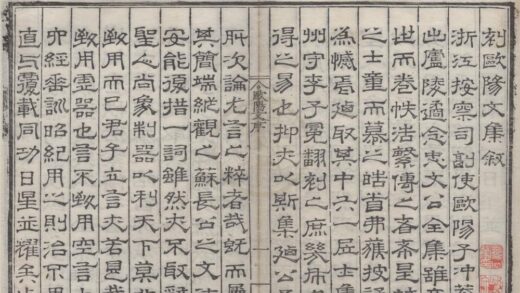 刻歐陽文集叙
浙江按察司副使歐陽子冲菴
出廬陵過念忠文公全集雖
世而卷帙浩繁傳之者希
之士童而慕之皓首弗獲按
為憾焉廼取其中六一居士集
州守李子冕翻刻之庶幾希
得之易也抑夫以斯集廼公
所次論尤言之粹者哉既而屬
其簡端縱觀之蘇長公之文
安能復措一詞雖然又不敢
聖人尚象制器以利天下莫
致用而已君子立言夫若是
致用虛器也言不致用空言
六經垂訓昭紀用之則治不用
直與覆載同功日星並耀矣
歐陽文序